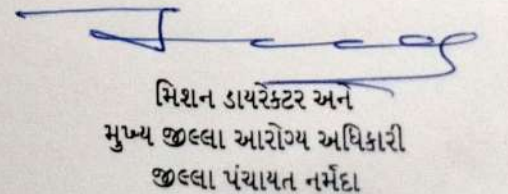 મિશન ડાયરેક્ટર અને
મુખ્ય જીલ્લા આરોગ્ય અધિકારી
જીલ્લા પંચાયત નર્મદા